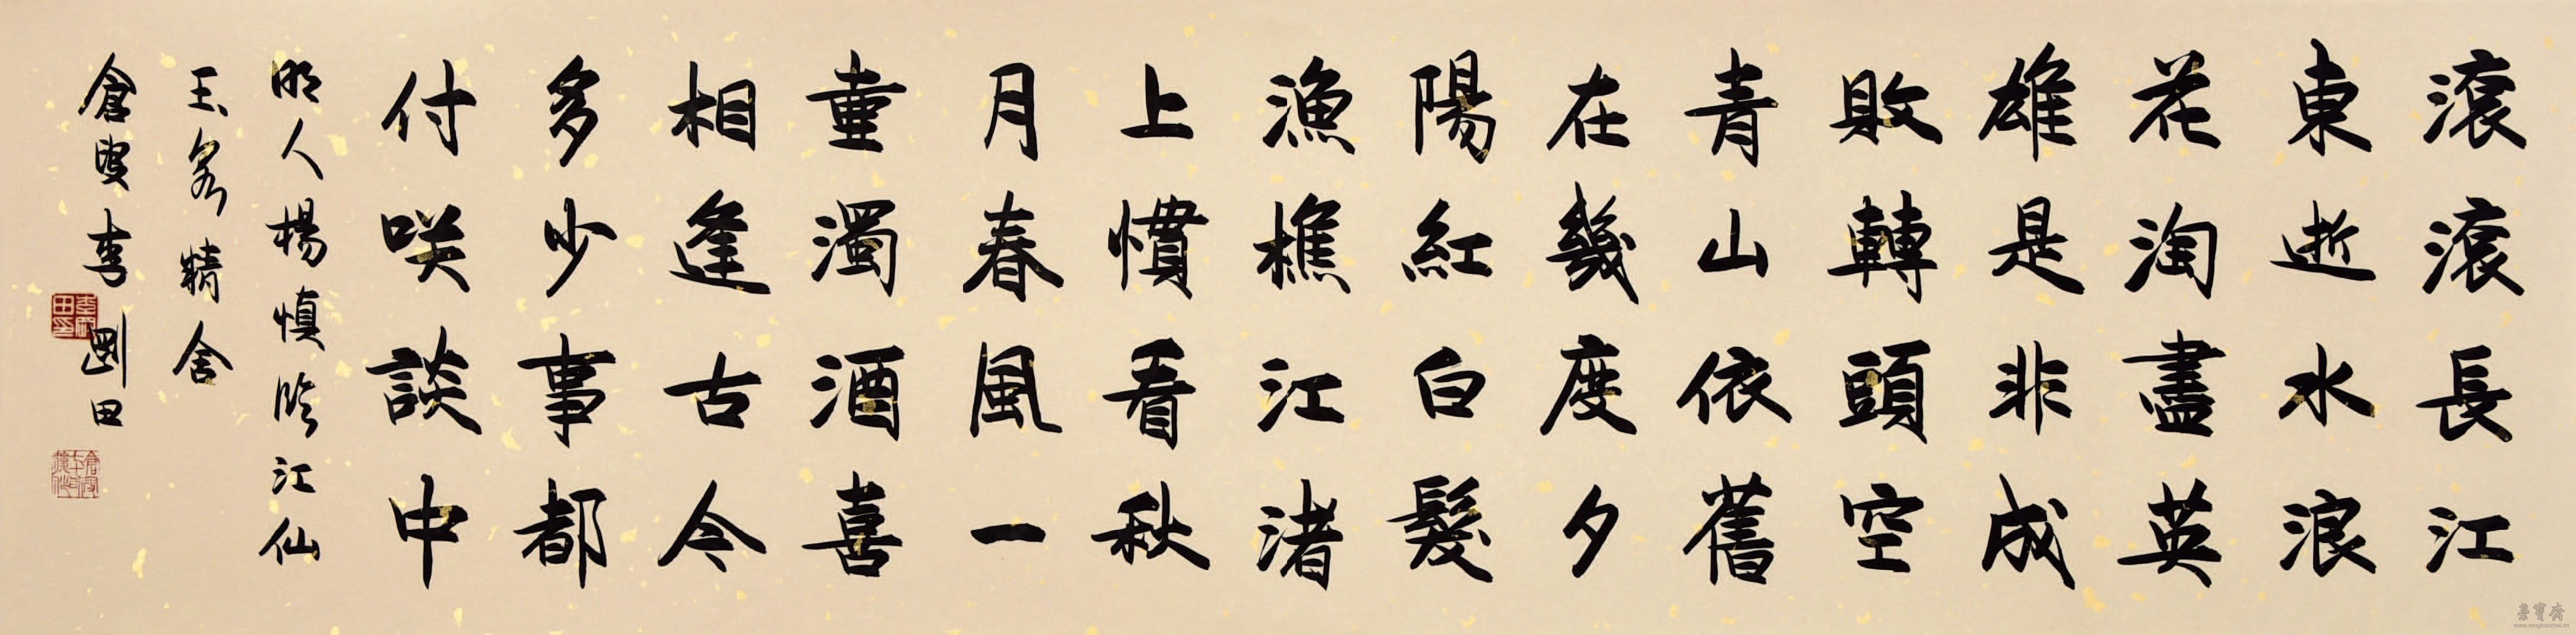 滾滾長江
東逝水浪
花淘盡英
雄是非成
敗轉頭空
青山依舊
在幾度夕
陽紅白髮
漁樵江渚
上慣看秋
月春風一
壷濁酒喜
相逢古今
多少事都
付咲談中
明人楊慎臨江仙
玉客精舍
倉叟李剛田
榮寶齋
www.rongbaozhai.cn